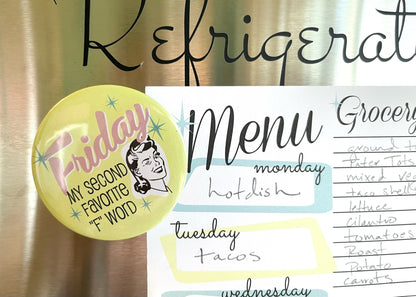 Refrigerat
Friday
MY SECOND
FAVORITE
"F" WORD
Menu
monday
hotdish
tuesday
tacos
wednesday
Grocery
ground t
Tater Tots
mixed veg
taco shells
lettuce
cilantro
tomatoes
Roast
Potato
carrots